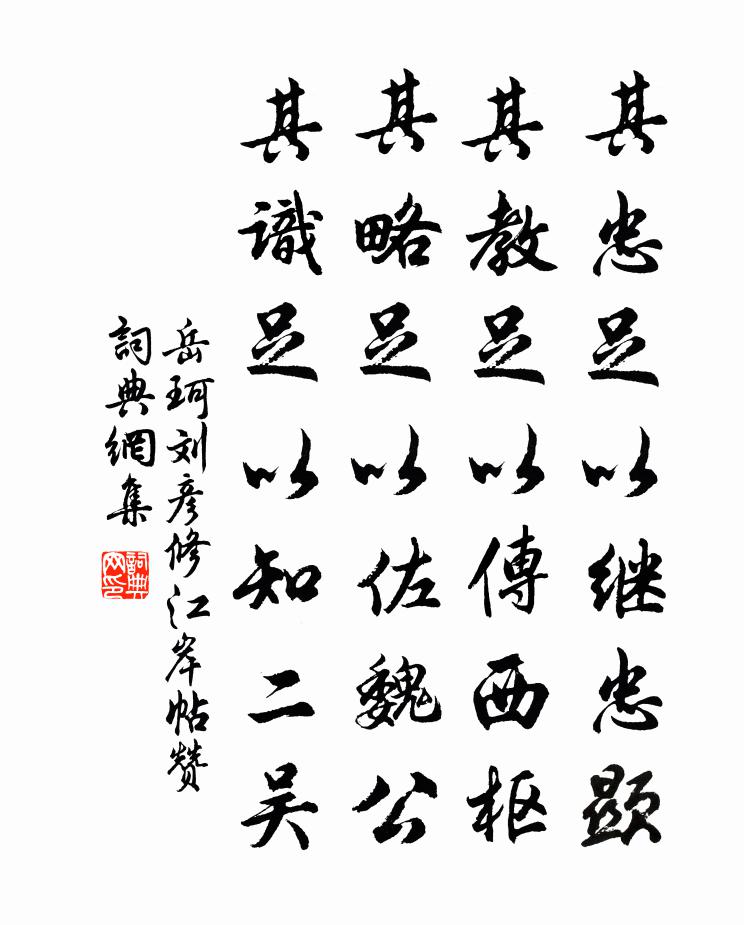 其忠足以继忠顕
其教足以傳西枢
其略足以佐魏公
其識足以知二吴
岳珂刘彦修江岸帖赞
詞典網集
詞典网印